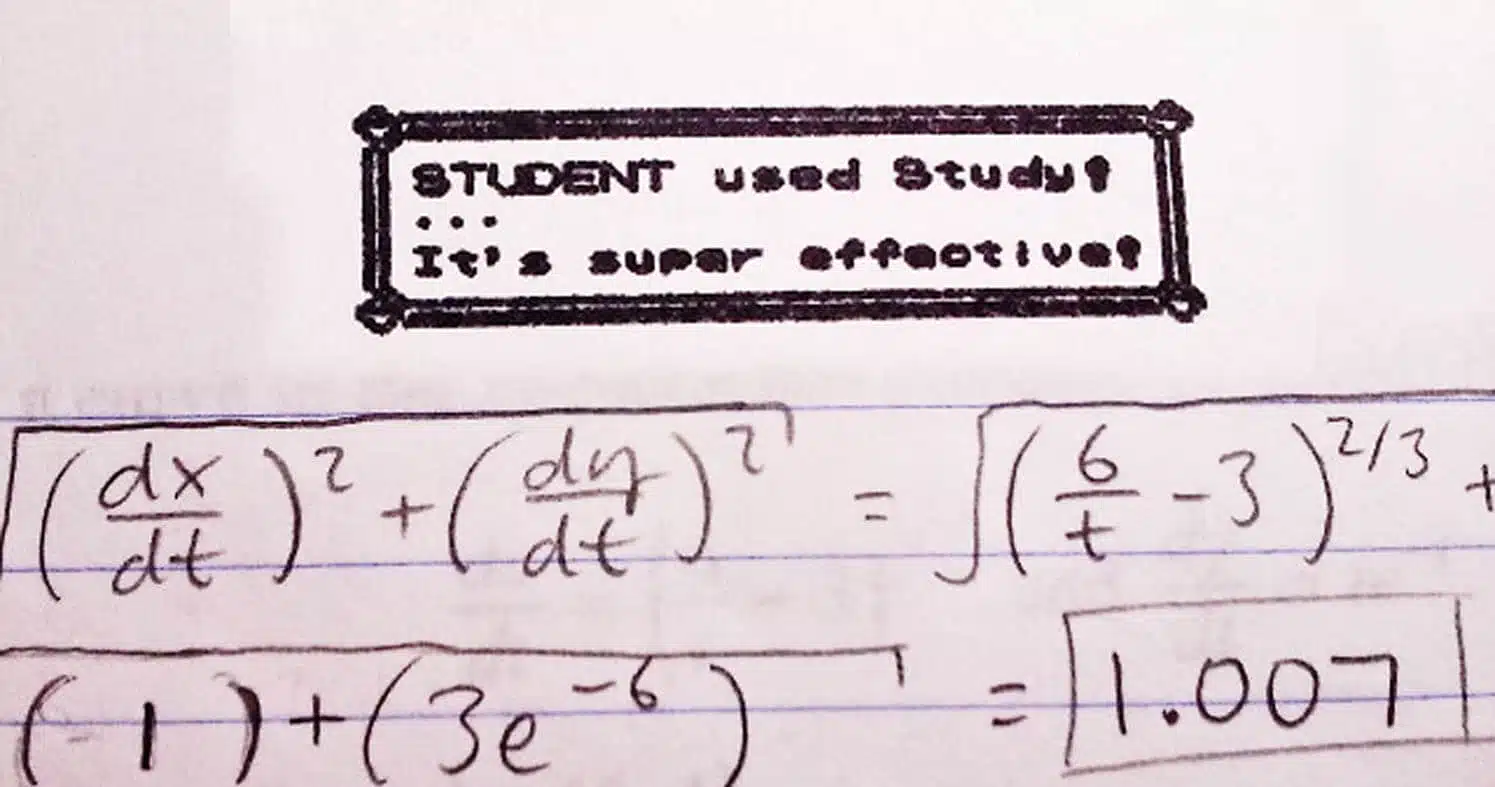 STUDENT used Study!
...
It's super effective!
√((dx/dt)² + (dy/dt)²) = √((6/t - 3)^(2/3) +
(1) + (3e⁻⁶) = 1.007